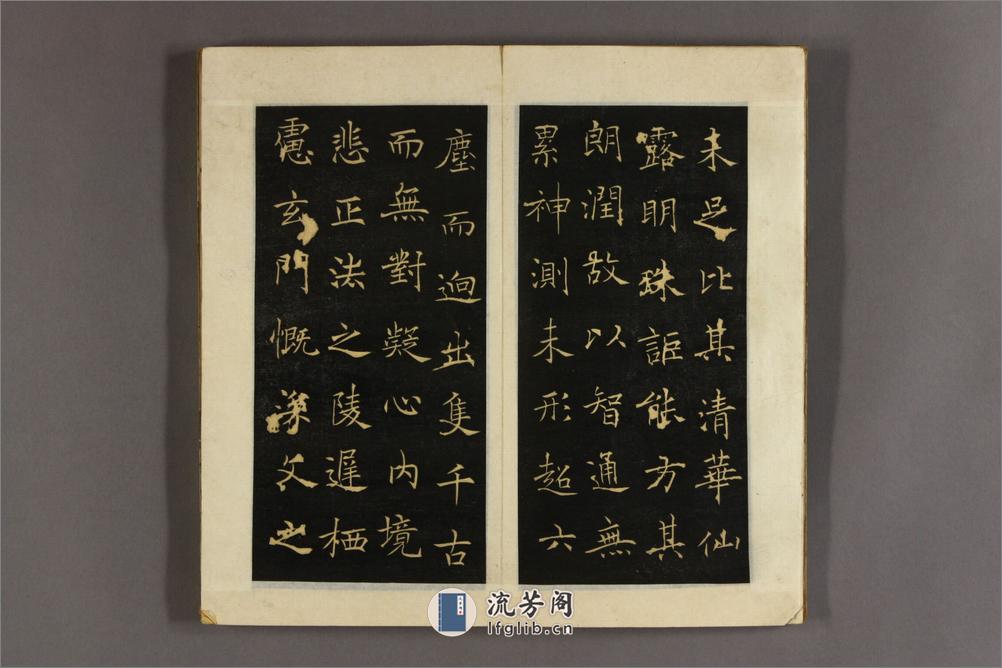 未足比其清華仙
露明珠詎能方其
朗潤故以智通無
累神測未形超六
塵而迥出隻千古
而無對凝心內境
悲正法之陵遲栖
慮玄門慨深文之
流芳阁
lfglib.cn